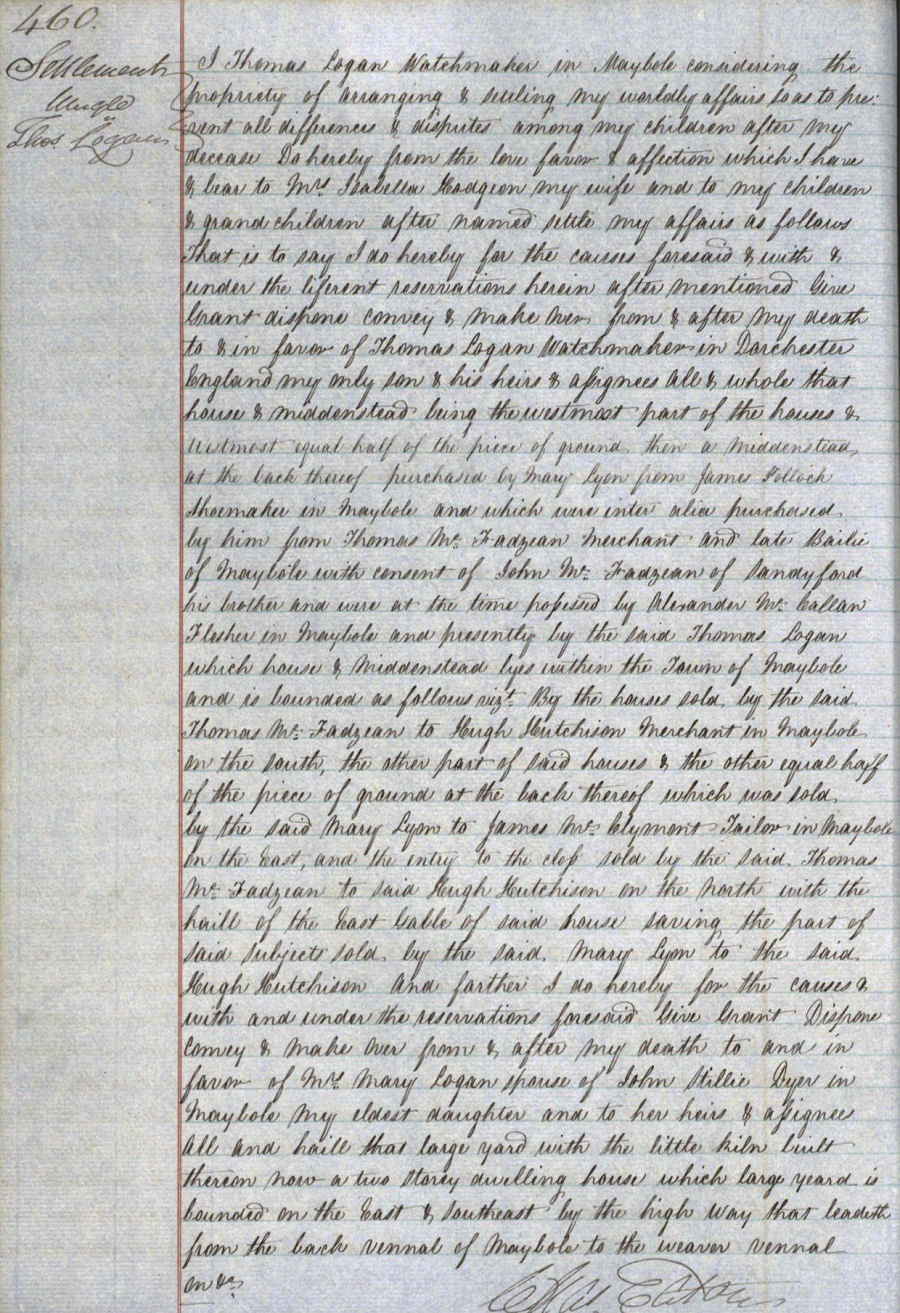 460.
Settlement
Thos Logan
I Thomas Logan Watchmaker in Maybole considering the
propriety of arranging & settling my worldly affairs so as to pre:
vent all differences & disputes among my children after my
decease Do hereby from the love favor & affection which I have
& bear to Mrs Isabella Hodgeon my wife and to my children
& grand children after named settle my affairs as follows
That is to say I do hereby for the causes foresaid & with &
under the liferent reservations herein after mentioned Give
Grant dispone convey & make over from & after my death
to & in favor of Thomas Logan Watchmaker in Dorchester
England my only son & his heirs & assignees All & whole that
house & middenstead being the westmost part of the houses &
Westmost equal half of the piece of ground then a Middenstead
at the back thereof purchased by Mary Lyon from James Pollock
Shoemaker in Maybole and which were inter alia purchased
by him from Thomas Mc Fadzean Merchant and late Bailie
of Maybole with consent of John Mc Fadzean of Sandyford
his brother and were at the time possessed by Alexander Mc Callan
Flesher in Maybole and presently by the said Thomas Logan
which house & Middenstead lyes within the Town of Maybole
and is bounded as follows vizt. By the houses sold by the said
Thomas Mc Fadzean to Hugh Hutchison Merchant in Maybole
on the south, the other part of said houses & the other equal half
of the piece of ground at the back thereof which was sold
by the said Mary Lyon to James Mc Clymont Tailor in Maybole
on the East, and the entry to the closs sold by the said Thomas
Mc Fadzean to said Hugh Hutchison on the North with the
haill of the East Gable of said house saving the part of
said subjects sold by the said Mary Lyon to the said
Hugh Hutchison And farther I do hereby for the causes &
with and under the reservations foresaid Give Grant Dispone
Convey & make over from & after my death to and in
favor of Mrs Mary Logan spouse of John Stillie Dyer in
Maybole my eldest daughter and to her heirs & assignees
All and haill that large yard with the little kiln built
thereon now a two storey dwelling house which large yeard is
bounded on the East & Southeast by the high way that leadeth
from the back vennal of Maybole to the weaver vennal